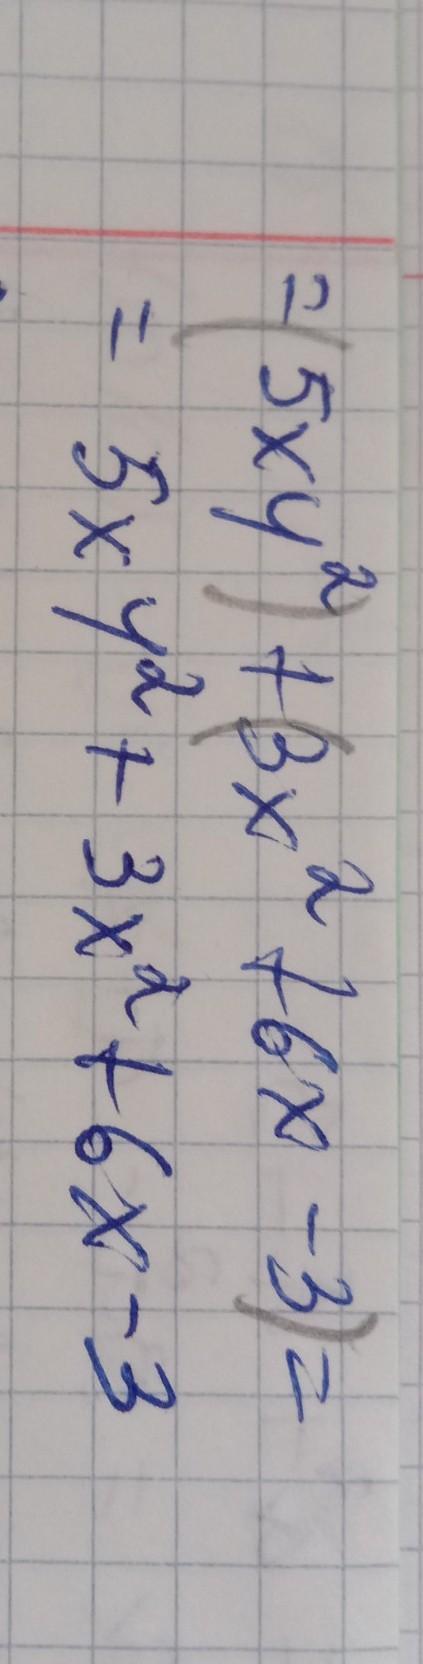 =(5xy²)+(3x²+6x-3)=
=5xy²+3x²+6x-3